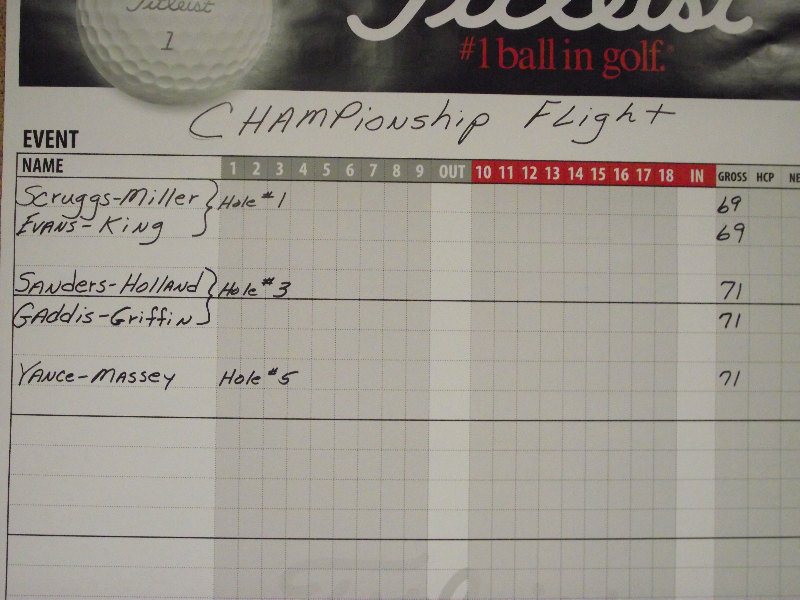 Titleist
1
Titleist
#1 ball in golf.®
CHAMPionship FLight
EVENT
NAME 1 2 3 4 5 6 7 8 9 OUT 10 11 12 13 14 15 16 17 18 IN GROSS HCP NE
Scruggs-Miller Hole #1 69
EVANS-King 69
SANders-HollANd Hole #3 71
GAddis-Griffin 71
YANCE-MASSEY Hole #5 71